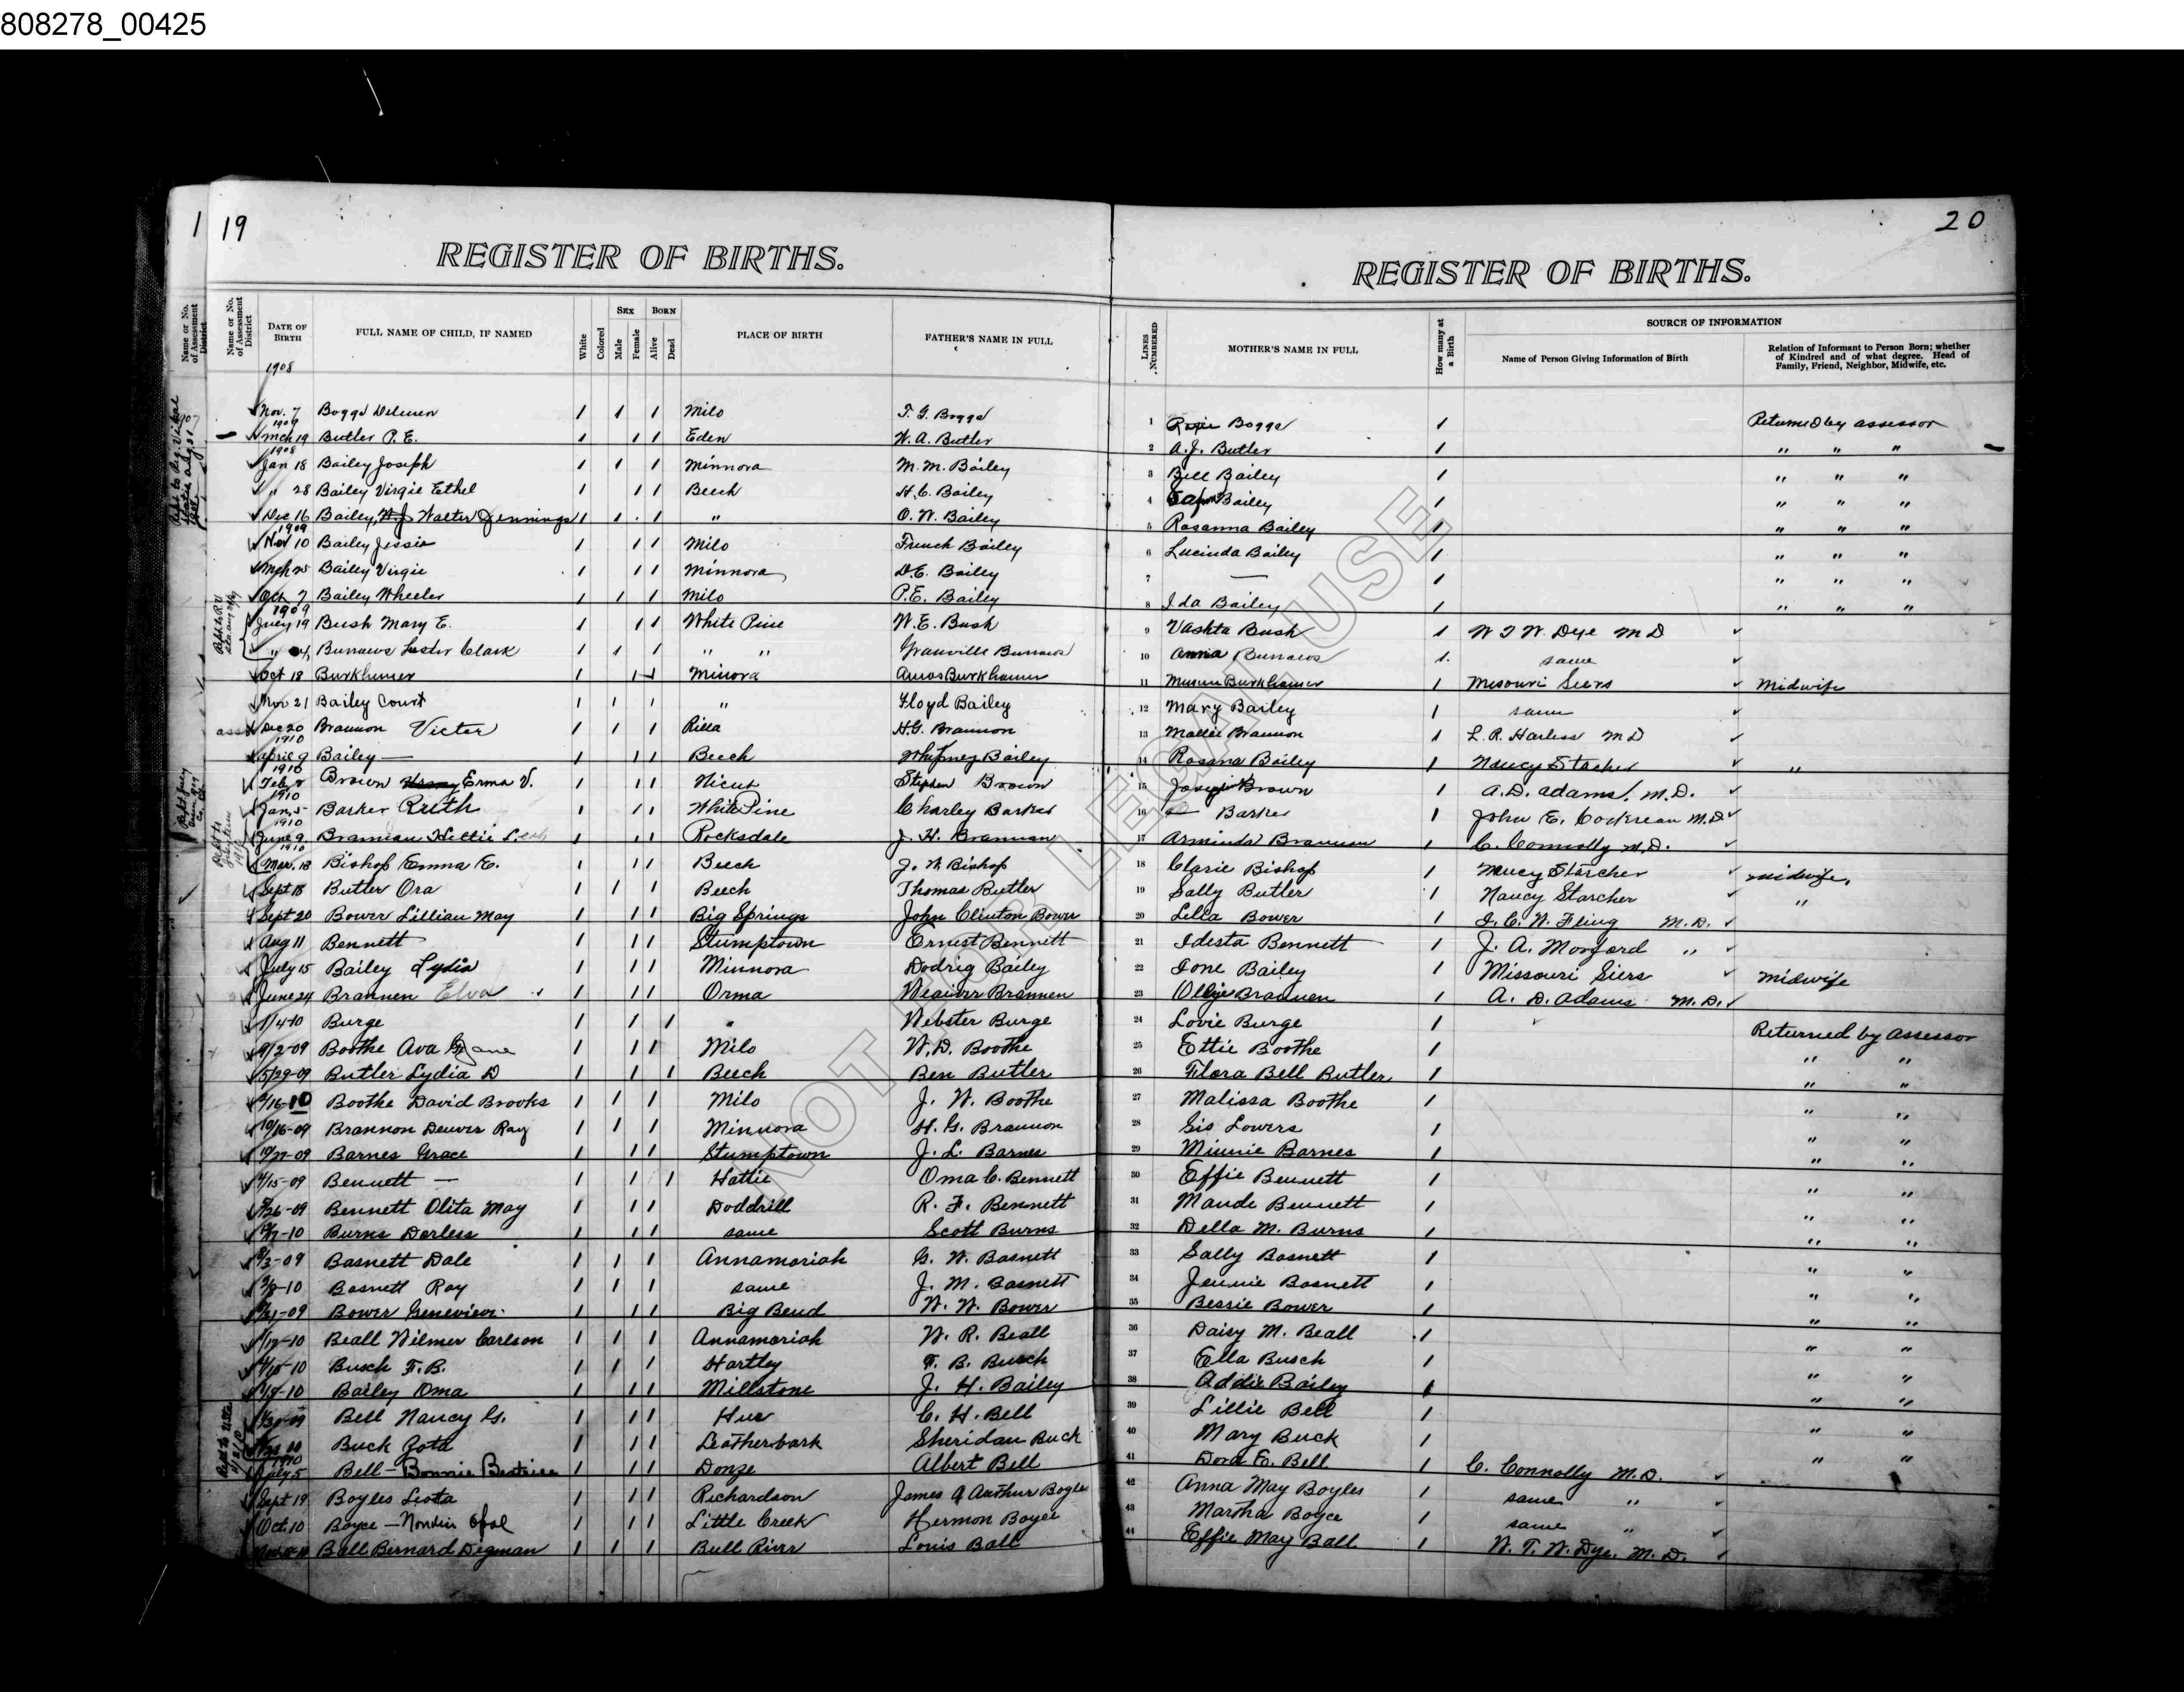 808278_00425
1 19
20
REGISTER OF BIRTHS.
REGISTER OF BIRTHS.
Name or No. of Assessment District
Name or No. of Assessment District
DATE OF BIRTH
FULL NAME OF CHILD, IF NAMED
White
Colored
SEX
Male
Female
BORN
Alive
Dead
PLACE OF BIRTH
FATHER'S NAME IN FULL
LINES NUMBERED
MOTHER'S NAME IN FULL
How many at a Birth
SOURCE OF INFORMATION
Name of Person Giving Information of Birth
Relation of Informant to Person Born; whether of Kindred and of what degree. Head of Family, Friend, Neighbor, Midwife, etc.
1908
Nov. 7 Boggs Delmen 1 1 1 Milo T. G. Boggs 1 Boggs 1 Returned by assessor
1909
Mch 19 Butler P. E. 1 1 1 Eden W. A. Butler 2 A. J. Butler 1 " " "
1908
Jan 18 Bailey Joseph 1 1 1 Minnora M. M. Bailey 3 Bell Bailey 1 " " "
" 28 Bailey Virgie Ethel 1 1 1 Beech H. C. Bailey 4 Bailey 1 " " "
Dec 16 Bailey, Walter Jennings 1 1 1 " O. W. Bailey 5 Rosanna Bailey 1 " " "
1909
Nov 10 Bailey Jessie 1 1 1 Milo French Bailey 6 Lucinda Bailey 1 " " "
Mch 25 Bailey Virgie 1 1 1 Minnora D. E. Bailey 7 — 1 " " "
Oct 7 Bailey Wheeler 1 1 1 Milo P. E. Bailey 8 Ida Bailey 1 " " "
1909
July 19 Bush Mary E. 1 1 1 White Pine W. E. Bush 9 Vashta Bush 1 W T W. Dye M D
" Burrows Lester Clark 1 1 1 " " Granville Burrows 10 Anna Burrows 1 same
Oct 18 Burkhamer 1 1 1 Minora Amos Burkhamer 11 Burkhamer 1 Misouri Siers Midwife
Nov 21 Bailey Court 1 1 1 " Floyd Bailey 12 Mary Bailey 1 same
Dec 20 Brannon Victer 1 1 1 Rilla H. G. Brannon 13 Mollie Brannon 1 L. R. Harless M D
1910
April 9 Bailey — 1 1 1 Beech Whitney Bailey 14 Rosana Bailey 1 Nancy Starcher "
1910
Feb. 8 Brown Erma V. 1 1 1 Nicut Stephen Brown 15 Brown 1 A. D. Adams, M. D.
1910
Jan. 5 Barker Ruth 1 1 1 White Pine Charley Barker 16 — Barker 1 John E. M. D.
1910
June 9 Brannan Hettie 1 1 1 Rocksdale J. H. Brannan 17 Arminda Brannan 1 C. Connolly M. D.
1910
Mar. 18 Bishop Emma E. 1 1 1 Beech J. W. Bishop 18 Clarie Bishop 1 Nancy Starcher midwife,
Sept 18 Butler Ora 1 1 1 Beech Thomas Butler 19 Sally Butler 1 Nancy Starcher "
Sept 20 Bower Lillian May 1 1 1 Big Springs John Clinton Bower 20 Lella Bower 1 I. C. W. Fling M. D.
Aug 11 Bennett 1 1 1 Stumptown Ernest Bennett 21 Idesta Bennett 1 J. A. Morford "
July 15 Bailey Lydia 1 1 1 Minnora Dodrig Bailey 22 Ione Bailey 1 Missouri Siers Midwife
June 24 Brannen Elva 1 1 1 Orma Weaiver Brannen 23 Ollie Brannen 1 A. D. Adams M. D.
1/4-10 Burge 1 1 1 " Webster Burge 24 Lovie Burge 1 Returned by Assessor
9/2-09 Boothe Ava Jane 1 1 1 Milo W. D. Boothe 25 Ettie Boothe 1 " "
5/29-09 Butler Lydia D 1 1 1 Beech Ben Butler 26 Flora Bell Butler 1 " "
/16-10 Boothe David Brooks 1 1 1 Milo J. W. Boothe 27 Malissa Boothe 1 " "
10/16-09 Brannon Denver Ray 1 1 1 Minnora H. G. Brannon 28 Sis Lowers 1 " "
/27-09 Barnes Grace 1 1 1 Stumptown J. L. Barnes 29 Minnie Barnes 1 " "
/15-09 Bennett — 1 1 1 Hattie Oma C. Bennett 30 Effie Bennett 1 " "
/26-09 Bennett Olita May 1 1 1 Doddrill R. F. Bennett 31 Maude Bennett 1 " "
-10 Burns Dorless 1 1 1 same Scott Burns 32 Della M. Burns 1 " "
/3-09 Basnett Dale 1 1 1 Annamoriah G. W. Basnett 33 Sally Basnett 1 " "
-10 Basnett Ray 1 1 1 same J. M. Basnett 34 Jennie Basnett 1 " "
/21-09 Bower Genevieve 1 1 1 Big Bend W. W. Bower 35 Bessie Bower 1 " "
/17-10 Beall Wilmer Carlson 1 1 1 Annamoriah W. R. Beall 36 Daisy M. Beall 1 " "
-10 Busch F. B. 1 1 1 Hartley F. B. Busch 37 Ella Busch 1 " "
-10 Bailey Oma 1 1 1 Millstone J. H. Bailey 38 Addie Bailey 1 " "
-09 Bell Nancy G. 1 1 1 Hur C. H. Bell 39 Lillie Bell 1 " "
Buck Zota 1 1 1 Leatherbark Sheridan Buck 40 Mary Buck 1 " "
1910
July 5 Bell - Bonnie Beatrice 1 1 1 Donze Albert Bell 41 Dora E. Bell 1 C. Connolly M. D.
Sept 19 Boyles Leota 1 1 1 Richardson James Arthur Boyles 42 Anna May Boyles 1 same "
Oct. 10 Boyce — Opal 1 1 1 Little Creek Hermon Boyce 43 Martha Boyce 1 same "
Ball Bernard Degman 1 1 1 Bull River Louis Ball 44 Effie May Ball 1 W. T. W. Dye, M. D.
NOT FOR LEGAL USE